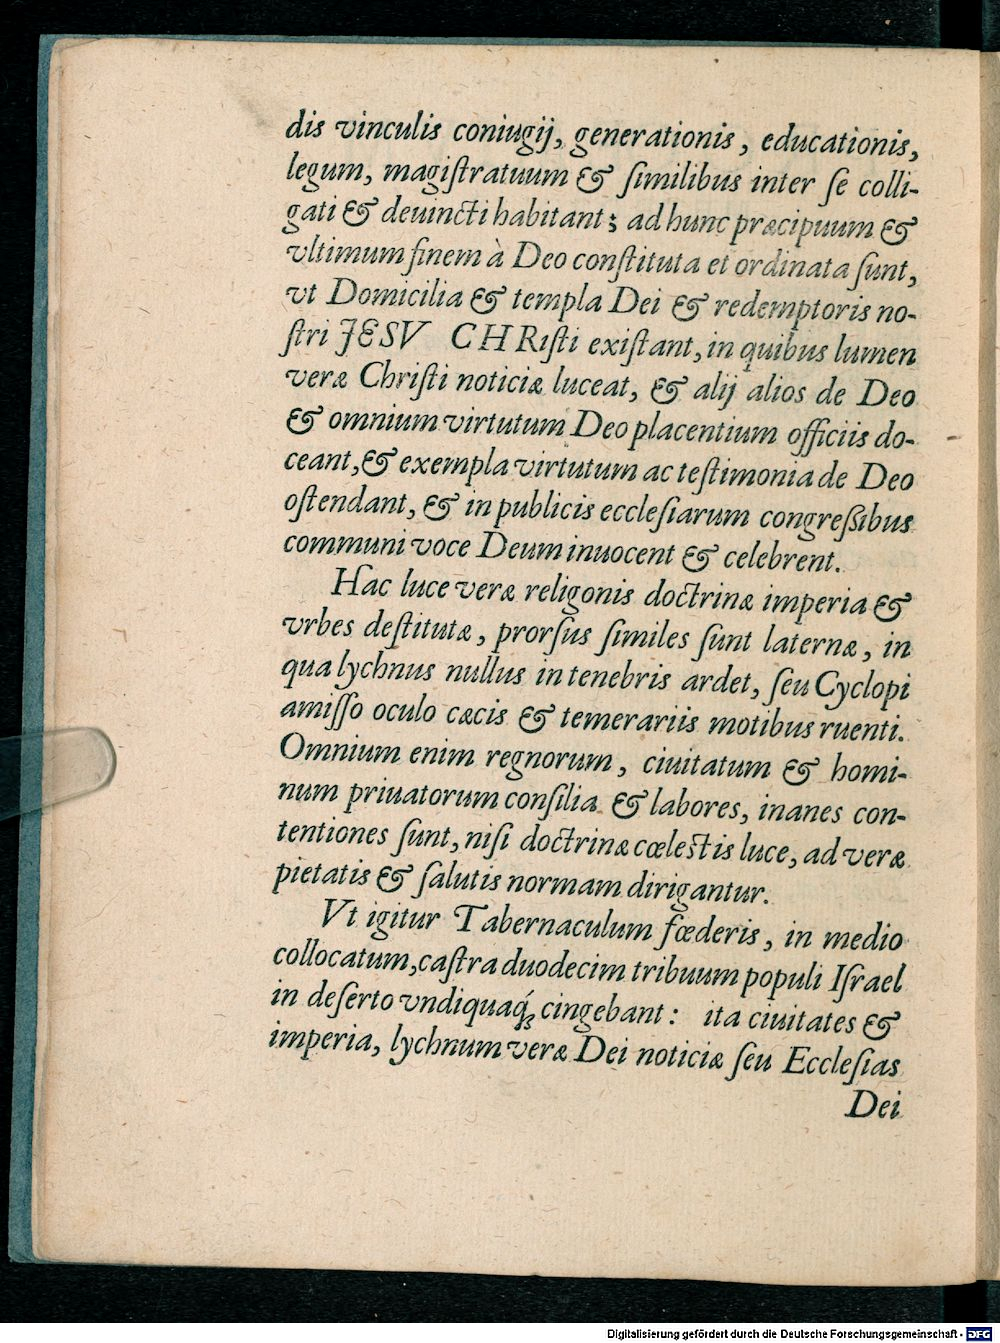 dis vinculis coniugij, generationis, educationis,
legum, magiſtratuum & ſimilibus inter ſe colli-
gati & deuincti habitant; ad hunc præcipuum &
vltimum finem à Deo conſtituta et ordinata ſunt,
vt Domicilia & templa Dei & redemptoris no-
ſtri JESV CHRiſti exiſtant, in quibus lumen
veræ Chriſti noticiæ luceat, & alij alios de Deo
& omnium virtutum Deo placentium officiis do-
ceant, & exempla virtutum ac teſtimonia de Deo
oſtendant, & in publicis eccleſiarum congreſsibus
communi voce Deum inuocent & celebrent.
Hac luce veræ religonis doctrinæ imperia &
vrbes deſtitutæ, prorſus ſimiles ſunt laternæ, in
qua lychnus nullus in tenebris ardet, ſeu Cyclopi
amiſſo oculo cæcis & temerariis motibus ruenti.
Omnium enim regnorum, ciuitatum & homi-
num priuatorum conſilia & labores, inanes con-
tentiones ſunt, niſi doctrinæ cœlestis luce, ad veræ
pietatis & ſalutis normam dirigantur.
Vt igitur Tabernaculum fœderis, in medio
collocatum, caſtra duodecim tribuum populi Iſrael
in deſerto vndiquaq́; cingebant: ita ciuitates &
imperia, lychnum veræ Dei noticiæ ſeu Eccleſias
Dei
Digitalisierung gefördert durch die Deutsche Forschungsgemeinschaft - DFG